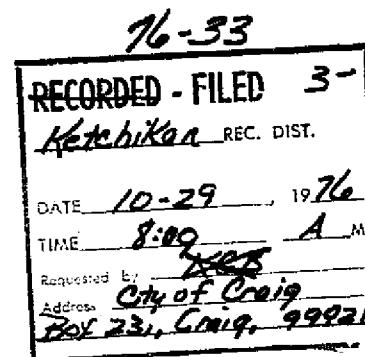 76-33
RECORDED - FILED 3-
Ketchikan REC. DIST.
DATE 10-29 1976
TIME 8:00 A M
Requested by KCB
Address City of Craig
Box 231, Craig, 99921